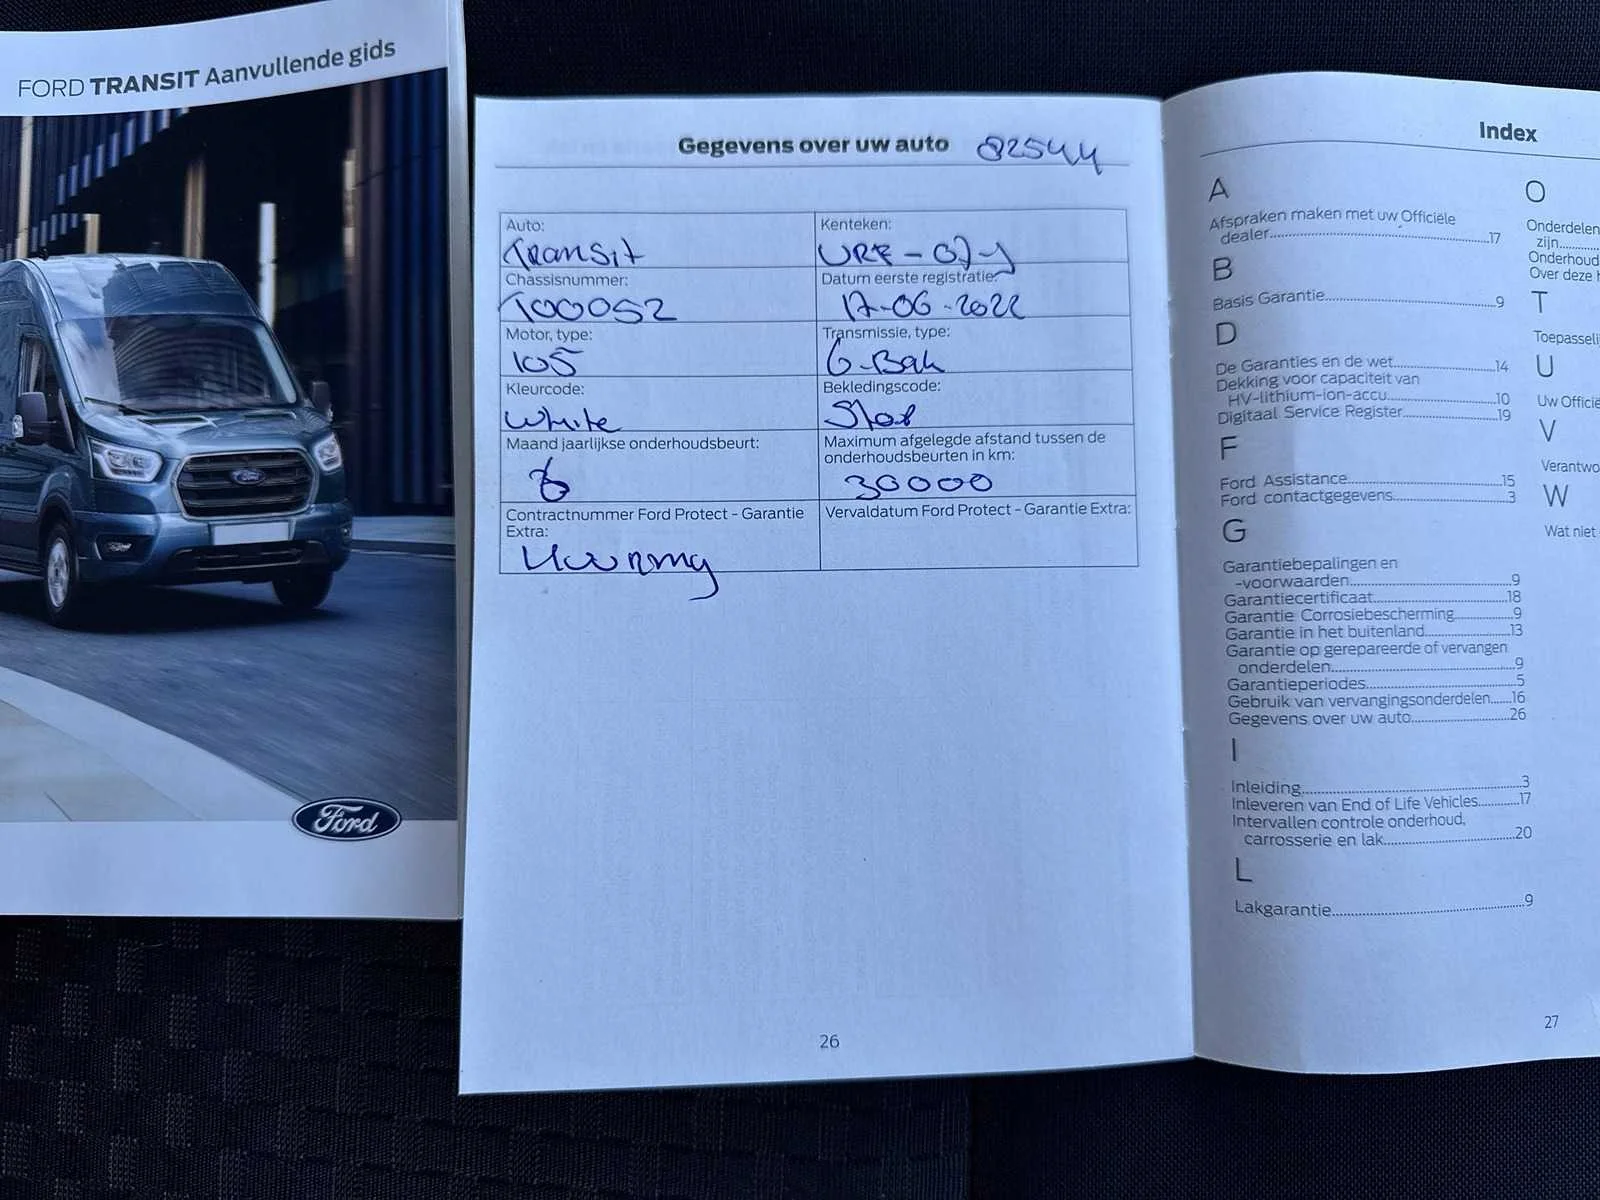 FORD TRANSIT Aanvullende gids
Ford
Gegevens over uw auto 82544
Auto:
Transit
Kenteken:
VRF-07-J
Chassisnummer:
T00052
Datum eerste registratie:
17-06-2022
Motor, type:
105
Transmissie, type:
6-Bak
Kleurcode:
White
Bekledingscode:
Stof
Maand jaarlijkse onderhoudsbeurt:
6
Maximum afgelegde afstand tussen de
onderhoudsbeurten in km:
30000
Contractnummer Ford Protect - Garantie
Extra:
Vervaldatum Ford Protect - Garantie Extra:
26
Index
A
Afspraken maken met uw Officiële
dealer...17
B
Basis Garantie...9
D
De Garanties en de wet...14
Dekking voor capaciteit van
HV-lithium-ion-accu...10
Digitaal Service Register...19
F
Ford Assistance...15
Ford contactgegevens...3
G
Garantiebepalingen en
-voorwaarden...9
Garantiecertificaat...18
Garantie Corrosiebescherming...9
Garantie in het buitenland...13
Garantie op gerepareerde of vervangen
onderdelen...9
Garantieperiodes...5
Gebruik van vervangingsonderdelen...16
Gegevens over uw auto...26
I
Inleiding...3
Inleveren van End of Life Vehicles...17
Intervallen controle onderhoud,
carrosserie en lak...20
L
Lakgarantie...9
O
Onderdelen
zijn...
Onderhoud
Over deze
T
Toepasseli
U
Uw Officië
V
Verantwo
W
Wat niet
27